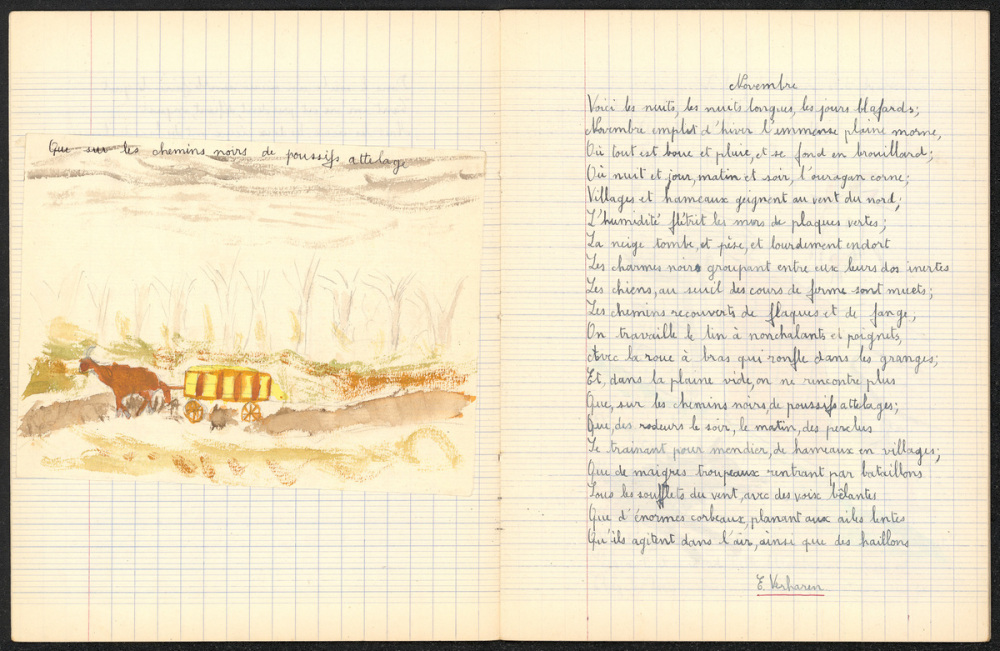 Que sur les chemins noirs de poussifs attelage
Novembre
Voici les nuits, les nuits longues, les jours blafards;
Novembre emplit d'hiver l'immense plaine morne,
Où tout est boue et pluie, et se fond en brouillard;
Où nuit et jour, matin et soir, l'ouragan corne;
Villages et hameaux geignent au vent du nord;
L'humidité flétrit les murs de plaques vertes;
La neige tombe, et pèse, et lourdement endort
Les charmes noirs groupant entre eux leurs dos inertes
Les chiens, au seuil des cours de ferme sont muets;
Les chemins recouverts de flaques et de fange,
On travaille le lin à nonchalants et poignets,
Avec la roue à bras qui ronfle dans les granges;
Et, dans la plaine vide, on ne rencontre plus
Que, sur les chemins noirs, de poussifs attelages;
Que, des rodeurs le soir, le matin, des perclus
Se trainant pour mendier, de hameaux en villages;
Que de maigres troupeaux rentrant par bataillons
Sous les soufflets du vent, avec des voix bêlantes
Que d'énormes corbeaux, planant aux ailes lentes
Qu'ils agitent dans l'air, ainsi que des haillons
E. Verharen